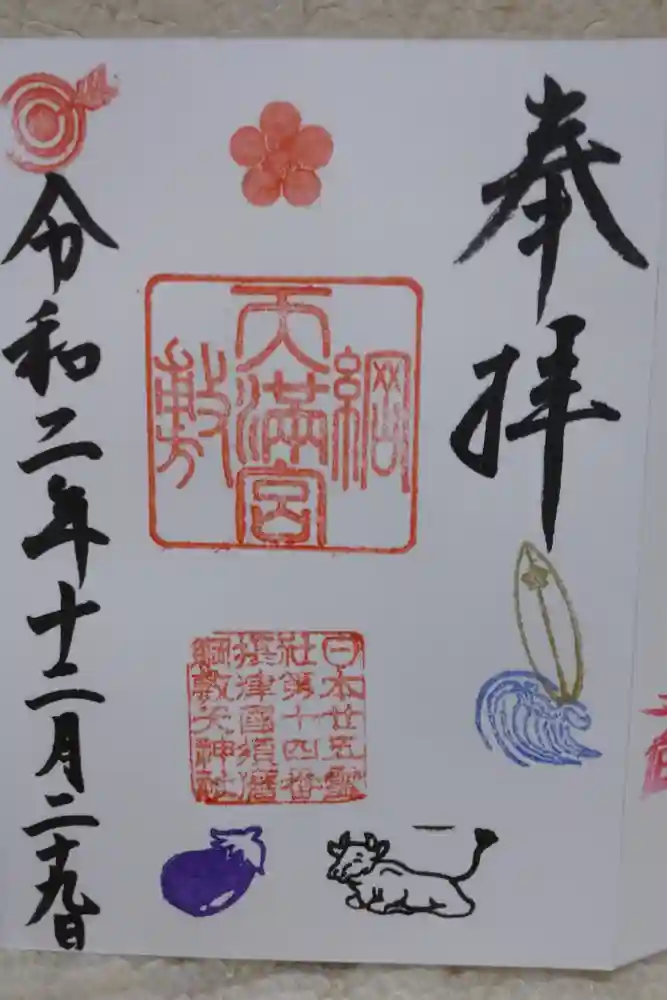 奉拝
綱敷天満宮
日本廿五霊
社第十四番
摂津國須磨
綱敷天神社
令和二年十二月二十九日